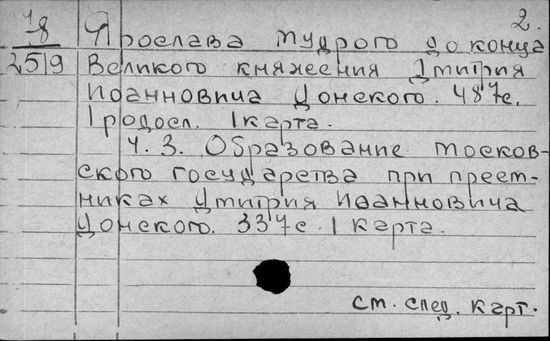 18 2.
2519 Ярослава Мудрого до конца
Великого княжения Дмитрия
Иоанновича Донского. 487с.
1 родосл. 1 карта.
Ч. 3. Образование Москов-
ского государства при преем-
никах Дмитрия Иоанновича
Донского. 337с. 1 карта.
См. след. карт.